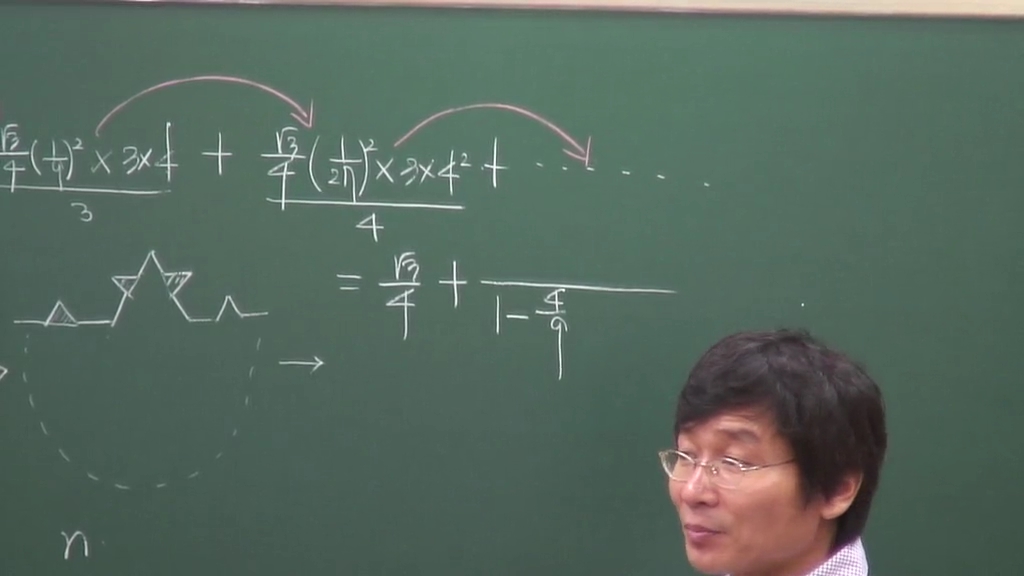 √3/4 (1/9)² × 3×4 + √3/4 (1/27)² × 3×4² + ‥‥‥
3 4
= √3/4 + ───── / 1 − 4/9
→
n